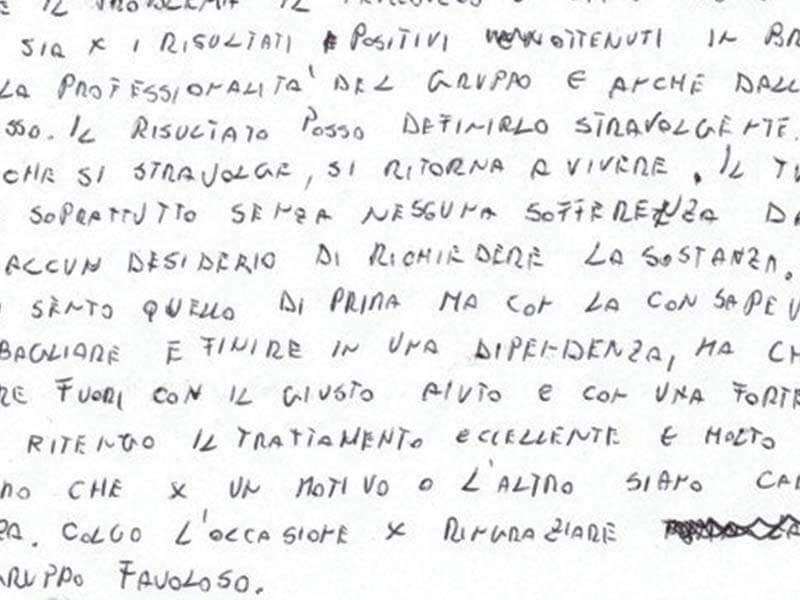 IL PROBLEMA IL
SIA X I RISULTATI POSITIVI OTTENUTI IN BR
LA PROFESSIONALITA' DEL GRUPPO E ANCHE DALL
SSO. IL RISULTATO POSSO DEFINIRLO STRAVOLGENTE.
CHE SI STRAVOLGE, SI RITORNA A VIVERE. IL TU
SOPRATTUTTO SENZA NESSUNA SOFFERENZA DA
ALCUN DESIDERIO DI RICHIEDERE LA SOSTANZA.
SENTO QUELLO DI PRIMA MA CON LA CONSAPEV
BAGLIARE E FINIRE IN UNA DIPENDENZA, MA CH
RE FUORI CON IL GIUSTO AIUTO E CON UNA FORTE
RITENGO IL TRATTAMENTO ECCELLENTE E MOLTO
NO CHE X UN MOTIVO O L'ALTRO SIAMO CA
ZA. COLGO L'OCCASIONE X RINGRAZIARE
GRUPPO FAVOLOSO.